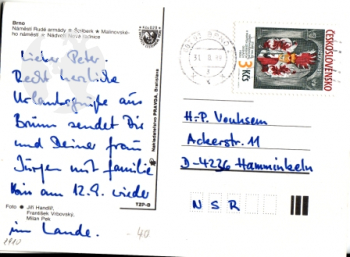 Brno
Náměstí Rudé armády • Špilberk • Malinovské-
ho náměstí • Nádvoří Nové radnice
Lieber Peter.
Recht herzliche
Urlaubsgrüße aus
Brünn sendet Dir
und Deiner frau
Jürgen mit familie
Bin am 12.9. wieder
im Lande.
Foto • Jiří Handlíř,
František Vrbovský,
Milan Pek
TZP-B
Nakladatelstvo PRAVDA, Bratislava
-40
ČESKOSLOVENSKO
3 Kčs
H.-P. Venhsem
Ackerstr. 11
D-4236 Hamminkeln
N S R